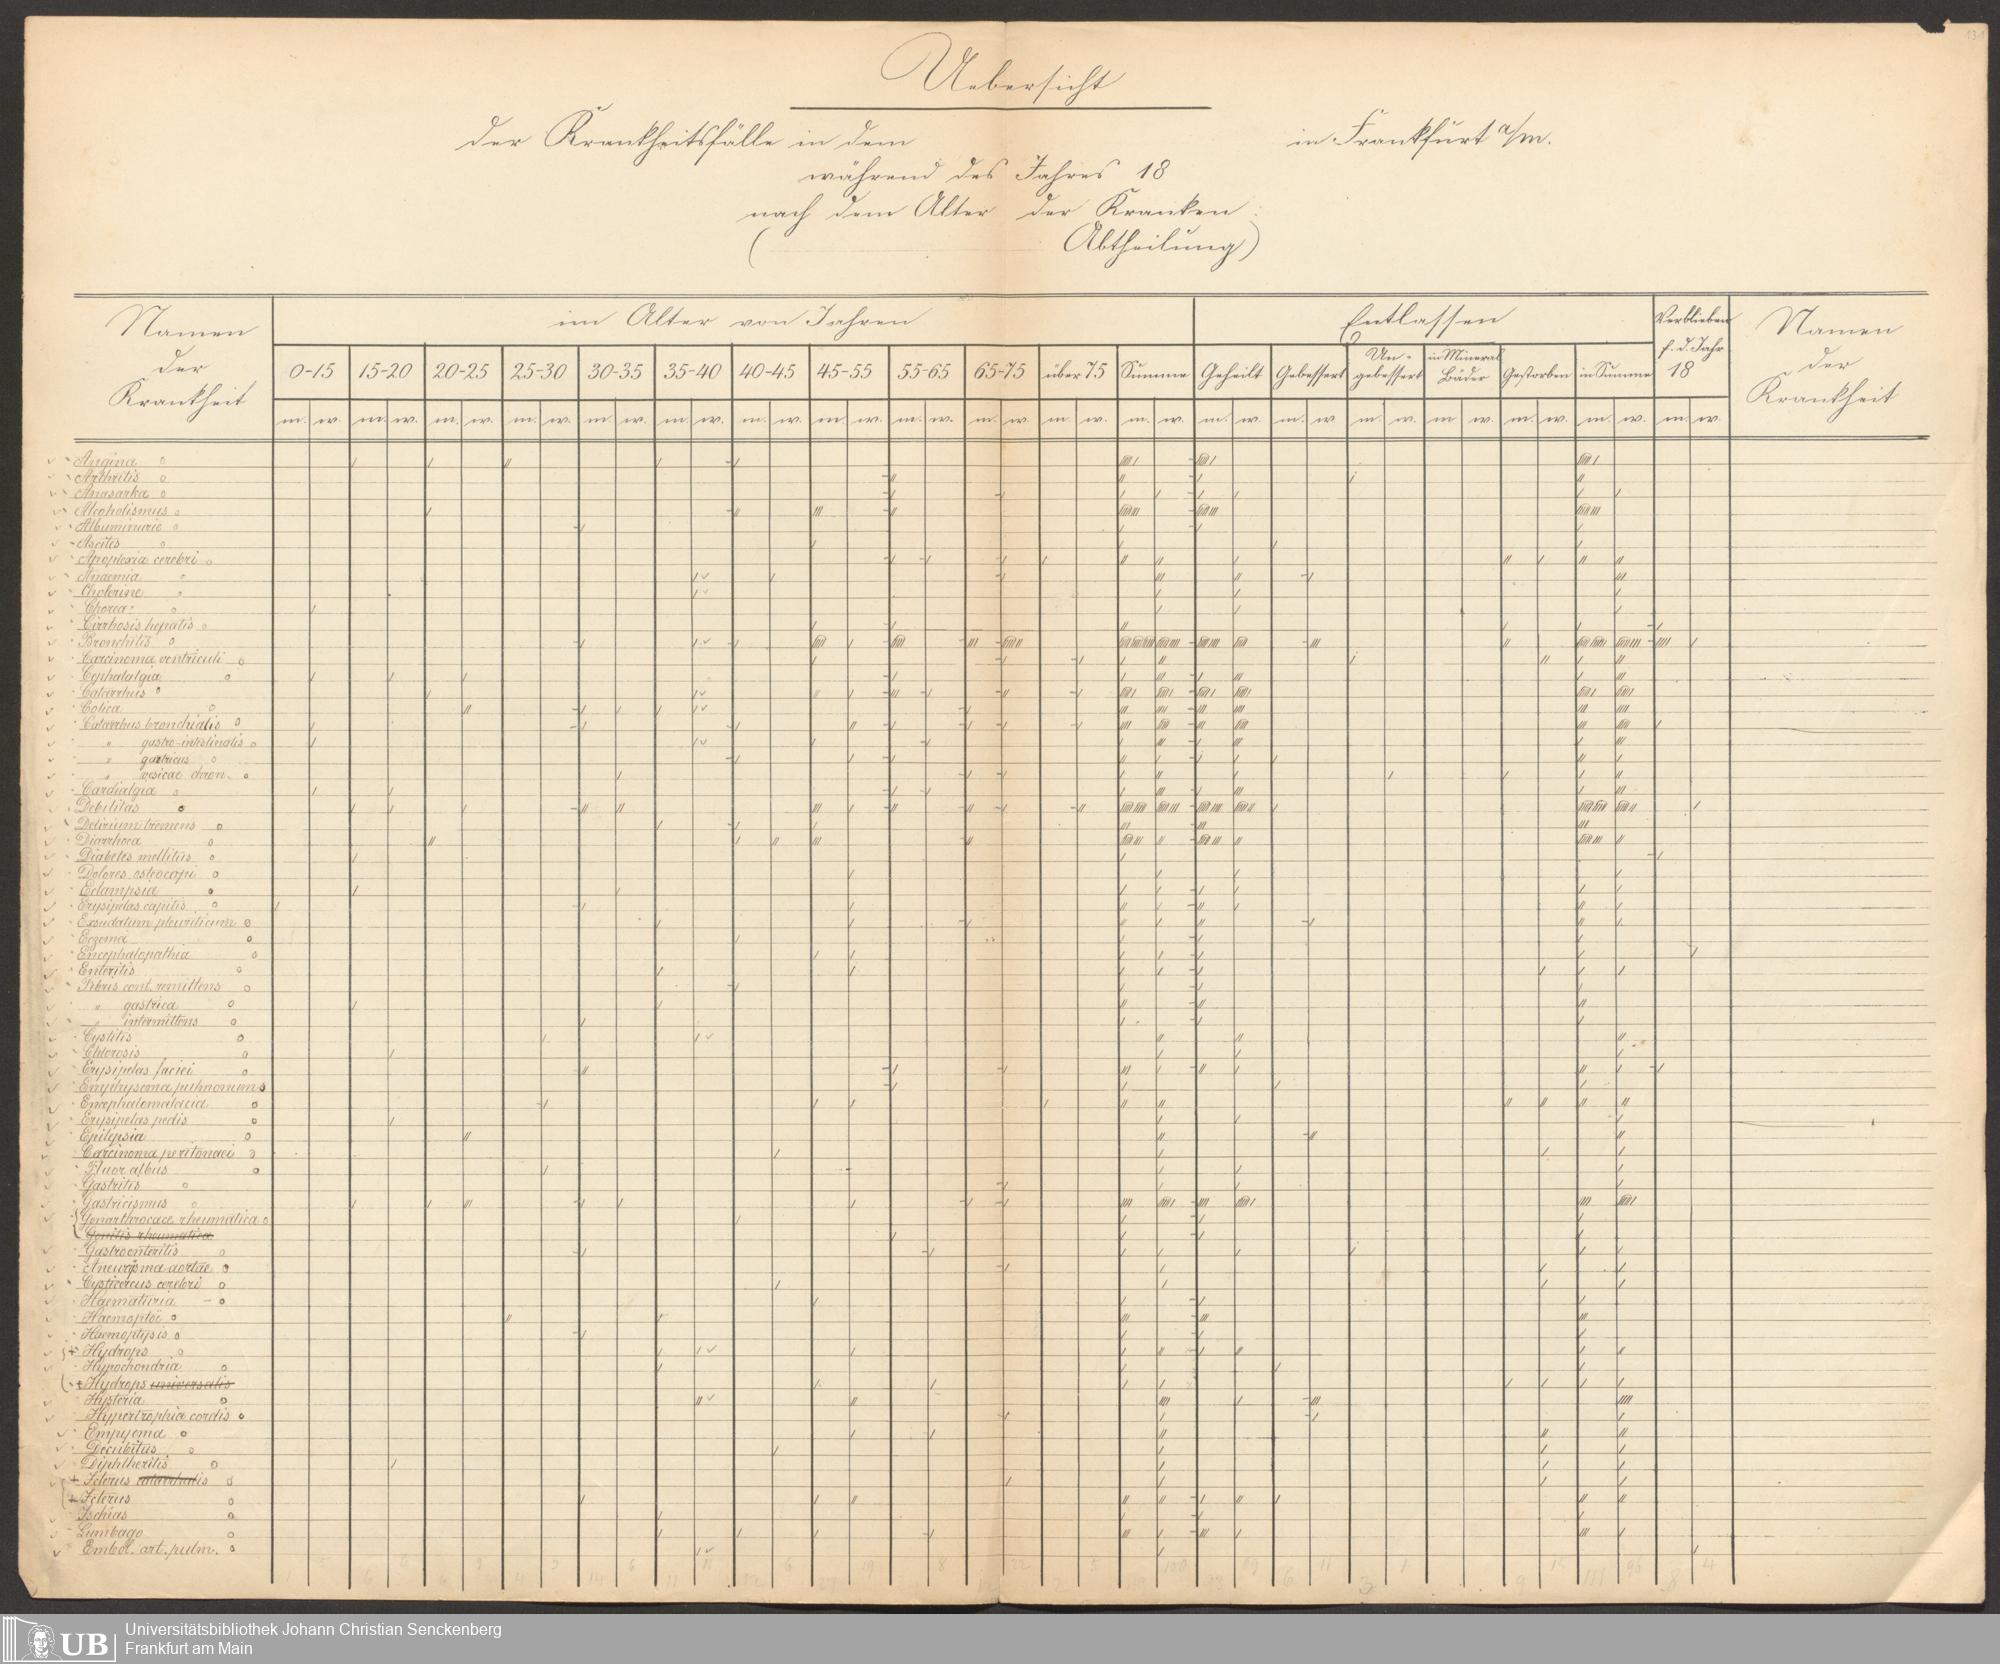 131
Uebersicht
der Krankheitsfälle in dem in Frankfurt a/m.
während des Jahres 18
nach dem Alter der Kranken:
( Abtheilung)
Namen der Krankheit
im Alter von Jahren
Entlassen
Verblieben f. d. Jahr 18
Namen der Krankheit
0-15 15-20 20-25 25-30 30-35 35-40 40-45 45-55 55-65 65-75 über 75 Summe Geheilt Gebessert Un-gebessert in Mineral Bäder Gestorben in Summe
m. w. m. w. m. w. m. w. m. w. m. w. m. w. m. w. m. w. m. w. m. w. m. w. m. w. m. w. m. w. m w. m. w. m. w. m. w.
Angina
Arthritis
Anasarka
Alcoholismus
Albuminurie
Ascites
Apoplexia cerebri
Anaemia
Cholerine
Chorea
Cirrhosis hepatis
Bronchitis
Carcinoma ventriculi
Cephalalgia
Catarrhus
Colica
Catarrhus bronchialis
" gastro-intestinalis
" gastricus
" vesicae chron.
Cardialgia
Debilitas
Delirium tremens
Diarrhoea
Diabetes mellitus
Dolores osteocopi
Eclampsia
Erysipelas capitis
Exsudatum pleuriticum
Eczema
Encephalopathia
Enteritis
Febris cont. remittens
" gastrica
" intermittens
Cystitis
Chlorosis
Erysipelas faciei
Emphysema pulmonum
Encephalomalacia
Erysipelas pedis
Epilepsia
Carcinoma peritonaei
Fluor albus
Gastritis
Gastricismus
Gonarthrocace rheumatica
Gonitis rheumatica
Gastroenteritis
Aneurysma aortae
Cysticercus cerebri
Haematuria
Haemoptoë
Haemoptysis
Hydrops
Hypochondria
Hydrops universalis
Hysteria
Hypertrophia cordis
Empyema
Decubitus
Diphtheritis
Icterus catarrhalis
Icterus
Ischias
Lumbago
Embol. art. pulm.
UB Universitätsbibliothek Johann Christian Senckenberg
Frankfurt am Main